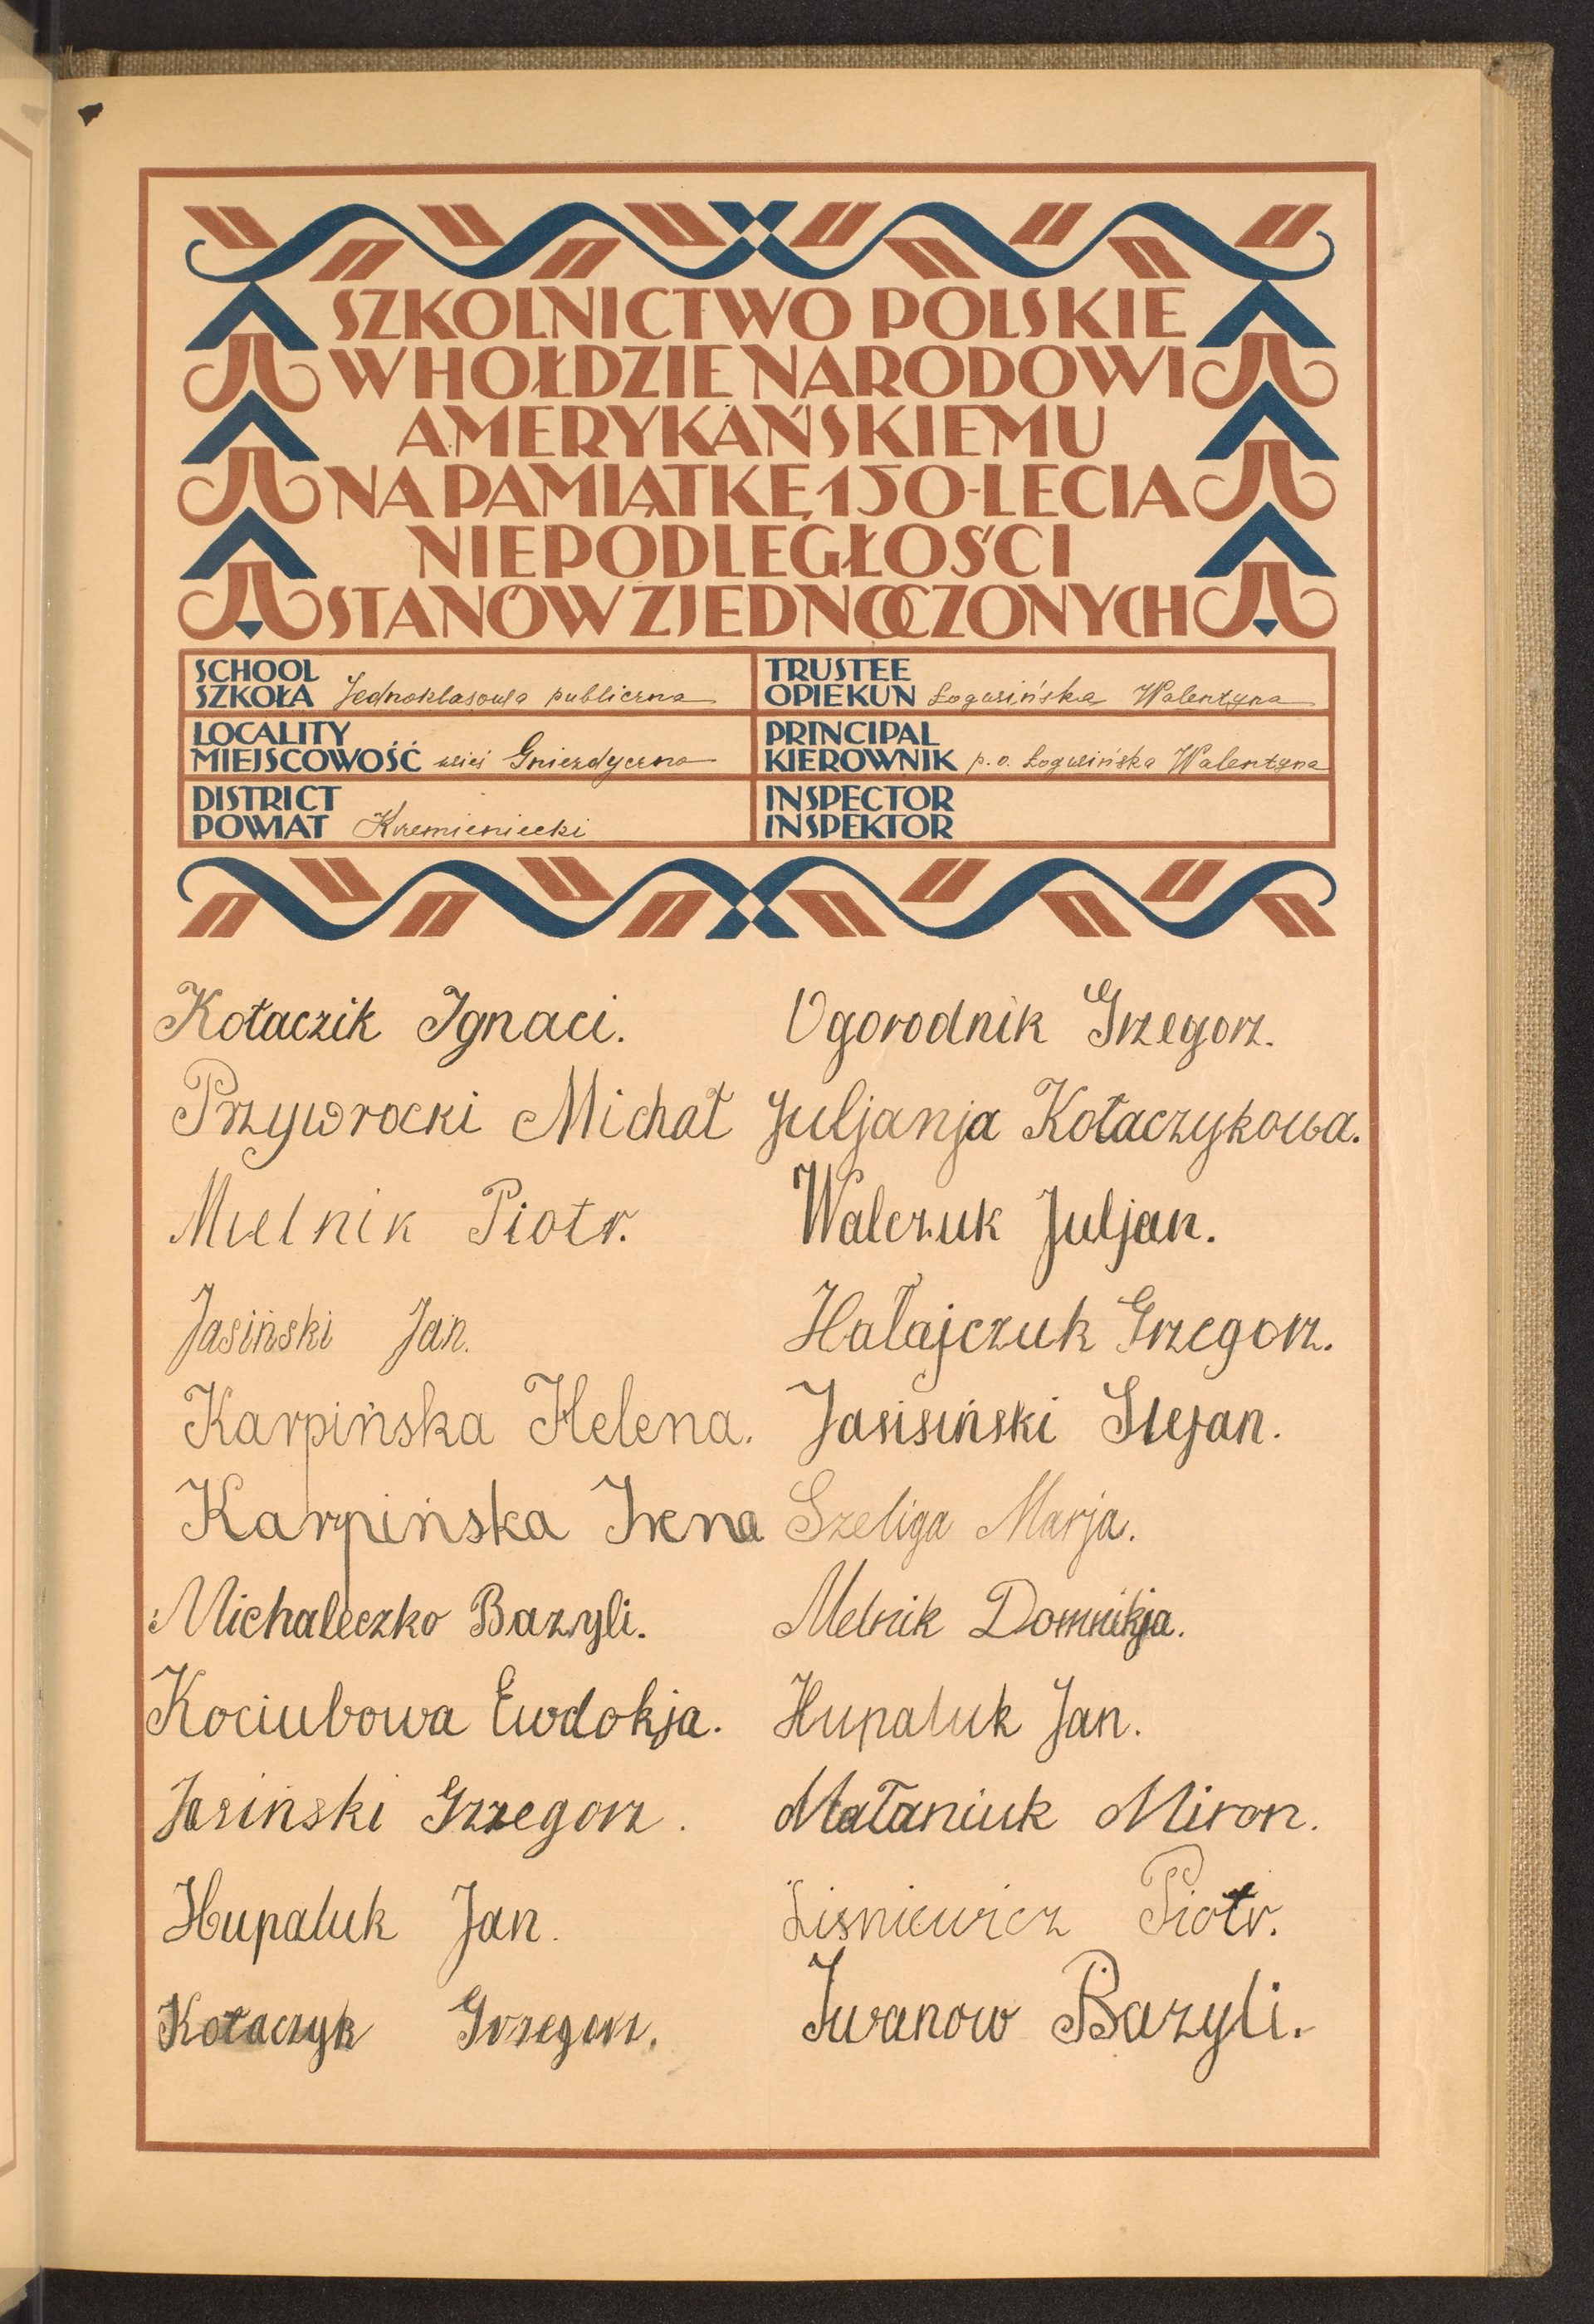 SZKOLNICTWO POLSKIE
W HOŁDZIE NARODOWI
AMERYKAŃSKIEMU
NA PAMIĄTKĘ 150-LECIA
NIEPODLEGŁOŚCI
STANÓW ZJEDNOCZONYCH
SCHOOL
SZKOŁA Jednoklasowa publiczna
LOCALITY
MIEJSCOWOŚĆ wieś Gniezdyczna
DISTRICT
POWIAT Krzemieniecki
TRUSTEE
OPIEKUN Łogwińska Walentyna
PRINCIPAL
KIEROWNIK p.o. Łogwińska Walentyna
INSPECTOR
INSPEKTOR
Kołaczik Ignaci.
Przyworocki Michał
Mielnik Piotr.
Jasiński Jan.
Karpińska Helena.
Karpińska Irena
Michaleczko Bazyli.
Kociubowa Ewdokja.
Jasiński Grzegorz.
Hupaluk Jan.
Kołaczyk Grzegorz.
Ogorodnik Grzegorz.
Juljanja Kołaczykowa.
Walczuk Juljan.
Hałajczuk Grzegorz.
Jasisiński Stefan.
Szeliga Marja.
Melnik Domnikja.
Hupaluk Jan.
Małaniuk Miron.
Liśniewicz Piotr.
Iwanow Bazyli.